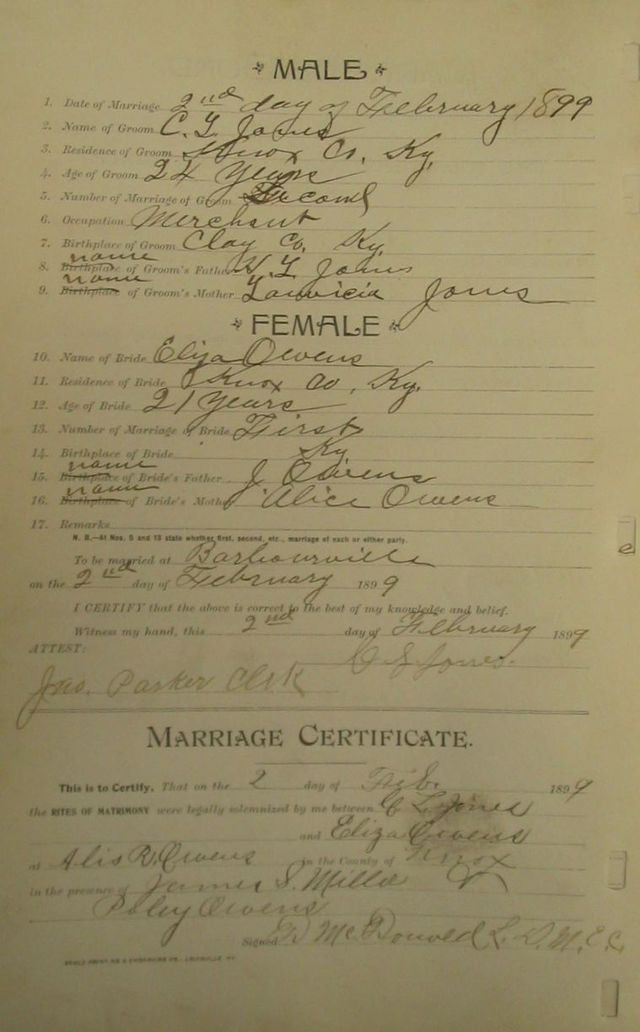 MALE
1. Date of Marriage 2nd day of February 1899
2. Name of Groom C. L. Jones
3. Residence of Groom Knox Co, Ky.
4. Age of Groom 24 Years
5. Number of Marriage of Groom Second
6. Occupation Merchant
7. Birthplace of Groom Clay Co. Ky.
name
8. Birthplace of Groom's Father H. L Jones
name
9. Birthplace of Groom's Mother Jones
FEMALE
10. Name of Bride Eliza Owens
11. Residence of Bride Knox Co, Ky.
12. Age of Bride 21 Years
13. Number of Marriage of Bride First
14. Birthplace of Bride Ky
name
15. Birthplace of Bride's Father J Owens
name
16. Birthplace of Bride's Mother Alice Owens
17. Remarks
N. B.—At Nos. 5 and 13 state whether first, second, etc., marriage of each or either party.
To be married at Barbourville
on the 2nd day of February 1899
I CERTIFY that the above is correct to the best of my knowledge and belief.
Witness my hand, this 2nd day of February 1899
ATTEST:
C. L. Jones.
Jno. Parker Clerk
MARRIAGE CERTIFICATE.
This is to Certify, That on the 2 day of Feb. 1899
the RITES OF MATRIMONY were legally solemnized by me between C L Jones
and Eliza Owens
at Owens in the County of Knox
in the presence of James S. Miller
Owens
Signed McDonald